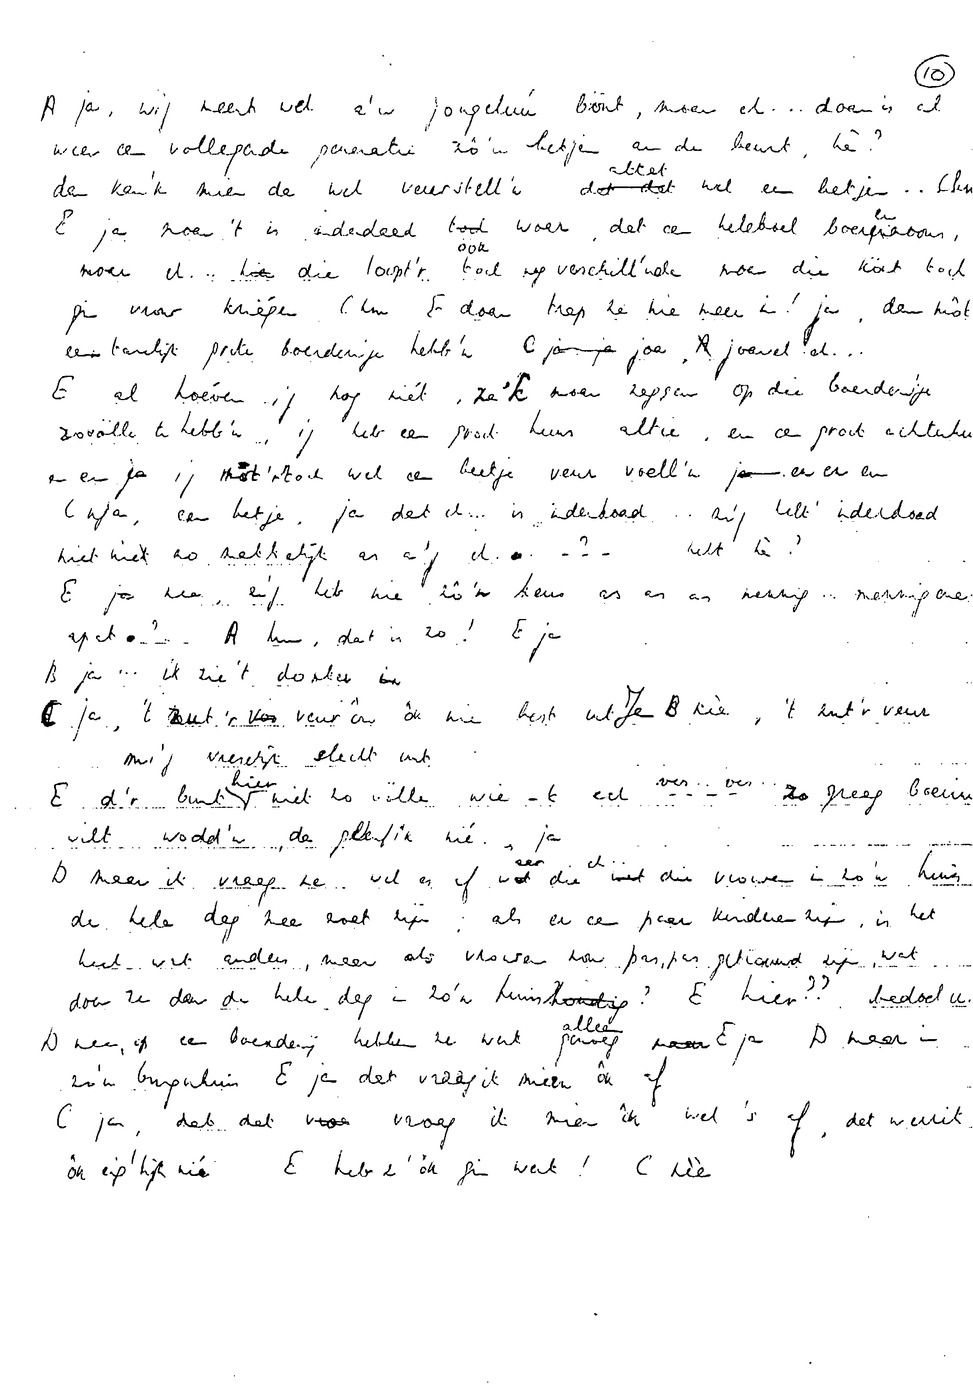 10
A ja, wij weert wel a'w jongeluu bönt, moar eh... doar is al
weer een vollegende generatie zô'n betjen an de beurt, hè?
dan kan'k mien da wel veurstell'n altet wel een betjen .. C hm
E ja moar 't is inderdaad woar, dat een heleboel boeren,
moar eh... die loopt'r ook toch nog verschill'nde moar die könt toch
gin vrouw kriegen C hm E doar trap ze nie meer in! ja, dan möt
een tamelijk grote boerderije hebb'n C joa, A joawel eh...
E al hoeven ij nog niét, za'k moar zeggen op die boerderije
zovölle te hebb'n, ij heb een groot huus altie, en een groot achterhu
en en ja ij möt'r toch wel een beetje veur voell'n ja en en en
C nja, een betje, ja dat eh... is inderdoad .. zij hebt inderdoad
niet niet zo makkelijk as a'j eh. - ? - hebt hè?
E ja nee, zij heb nie zô'n keus as as as mennig .. mennig ene
apat . ? . A hm, dat is zo! E ja
B ja ... ik zie't donker in
C ja, 't zut'r veur ôns ôk nie best uut Je B nie, 't zut'r veur
mij vreselijk slecht uut
E d'r bunt hier niet zo völle wie - t eh ver... ver... zo graag boerin
wilt wodd'n, da gleuf ik nié., ja
D maar ik vraag me wel es af wat die eh... die vrouwen in zo'n huis
de hele dag mee zoet zijn ; als er een paar kinderen zijn, is het
heel wat anders, maar als vrouwen nou pas, pas getrouwd zijn, wat
doen ze dan de hele dag in zo'n huis? E hier?? bedoel u.
D nee, op een boerderij hebben ze werk alleen genoeg E ja D maar in
zo'n burgerhuis E ja dat vraag ik mien ôk af
C ja, dat dat vroag ik mien ôk wel 's af, dat weet ik
ôk eig'lijk nié E heb z'ôk gin werk! C nèè